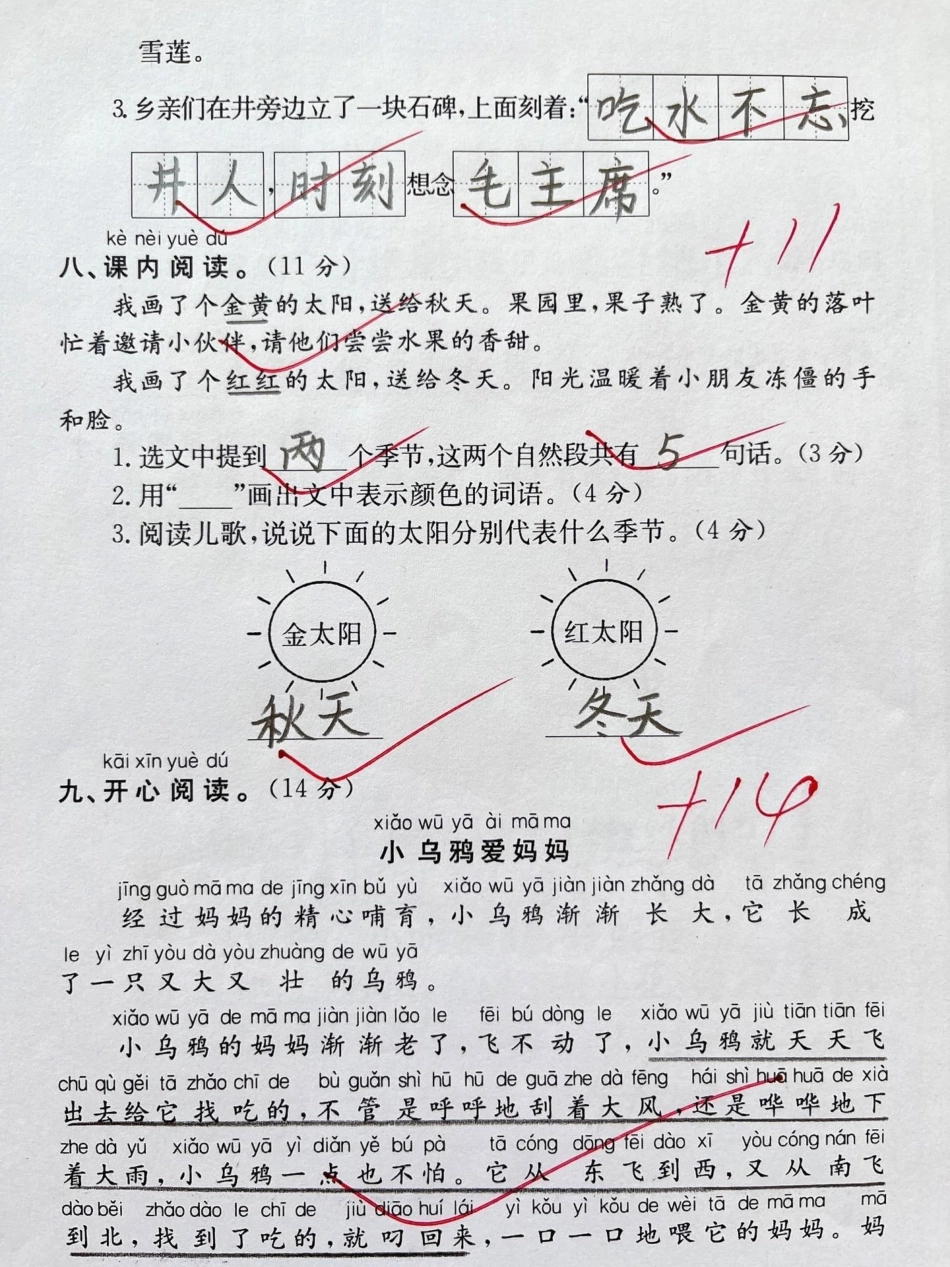 雪莲。
3. 乡亲们在井旁边立了一块石碑，上面刻着：“吃水不忘挖
井人，时刻想念毛主席。”
+11
kè nèi yuè dú
八、课内阅读。（11 分）
我画了个金黄的太阳，送给秋天。果园里，果子熟了。金黄的落叶
忙着邀请小伙伴，请他们尝尝水果的香甜。
我画了个红红的太阳，送给冬天。阳光温暖着小朋友冻僵的手
和脸。
1. 选文中提到 两 个季节，这两个自然段共有 5 句话。（3 分）
2. 用“____”画出文中表示颜色的词语。（4 分）
3. 阅读儿歌，说说下面的太阳分别代表什么季节。（4 分）
金太阳 红太阳
秋天 冬天
kāi xīn yuè dú
九、开心阅读。（14 分）
+14
xiǎo wū yā ài mā ma
小乌鸦爱妈妈
jīng guò mā ma de jīng xīn bǔ yù xiǎo wū yā jiàn jiàn zhǎng dà tā zhǎng chéng
经过妈妈的精心哺育，小乌鸦渐渐长大，它长成
le yì zhī yòu dà yòu zhuàng de wū yā
了一只又大又壮的乌鸦。
xiǎo wū yā de mā ma jiàn jiàn lǎo le fēi bú dòng le xiǎo wū yā jiù tiān tiān fēi
小乌鸦的妈妈渐渐老了，飞不动了，小乌鸦就天天飞
chū qù gěi tā zhǎo chī de bù guǎn shì hū hū de guā zhe dà fēng hái shì huā huā de xià
出去给它找吃的，不管是呼呼地刮着大风，还是哗哗地下
zhe dà yǔ xiǎo wū yā yì diǎn yě bú pà tā cóng dōng fēi dào xī yòu cóng nán fēi
着大雨，小乌鸦一点也不怕。它从东飞到西，又从南飞
dào běi zhǎo dào le chī de jiù diāo huí lái yì kǒu yì kǒu de wèi tā de mā ma mā
到北，找到了吃的，就叼回来，一口一口地喂它的妈妈。妈